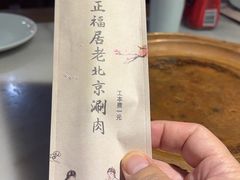 正福居老北京涮肉
工本费一元